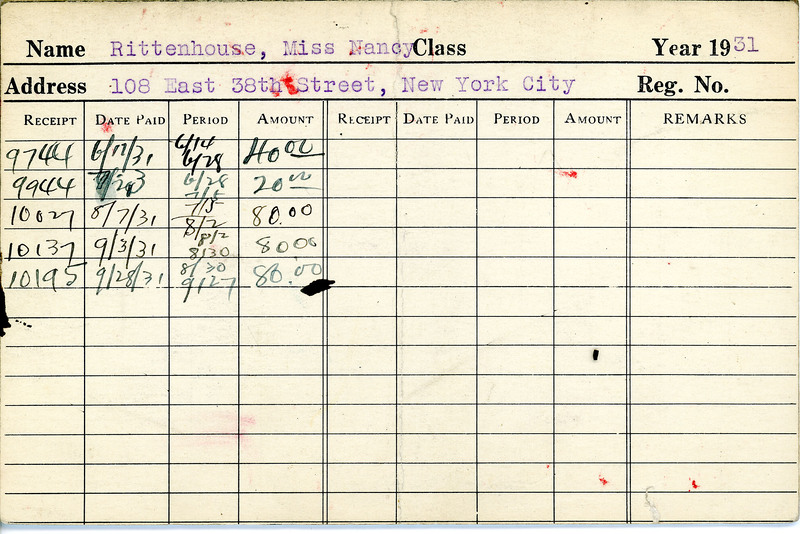 Name Rittenhouse, Miss Nancy Class Year 1931
Address 108 East 38th Street, New York City Reg. No.
RECEIPT DATE PAID PERIOD AMOUNT RECEIPT DATE PAID PERIOD AMOUNT REMARKS
6/14
9744 6/17/31 6/28 40 00
9944 6/28 20 00
7/15
10027 8/7/31 8/2 80.00
8/2
10137 9/3/31 8/30 80 00
8/30
10195 9/28/31 9/27 80.00